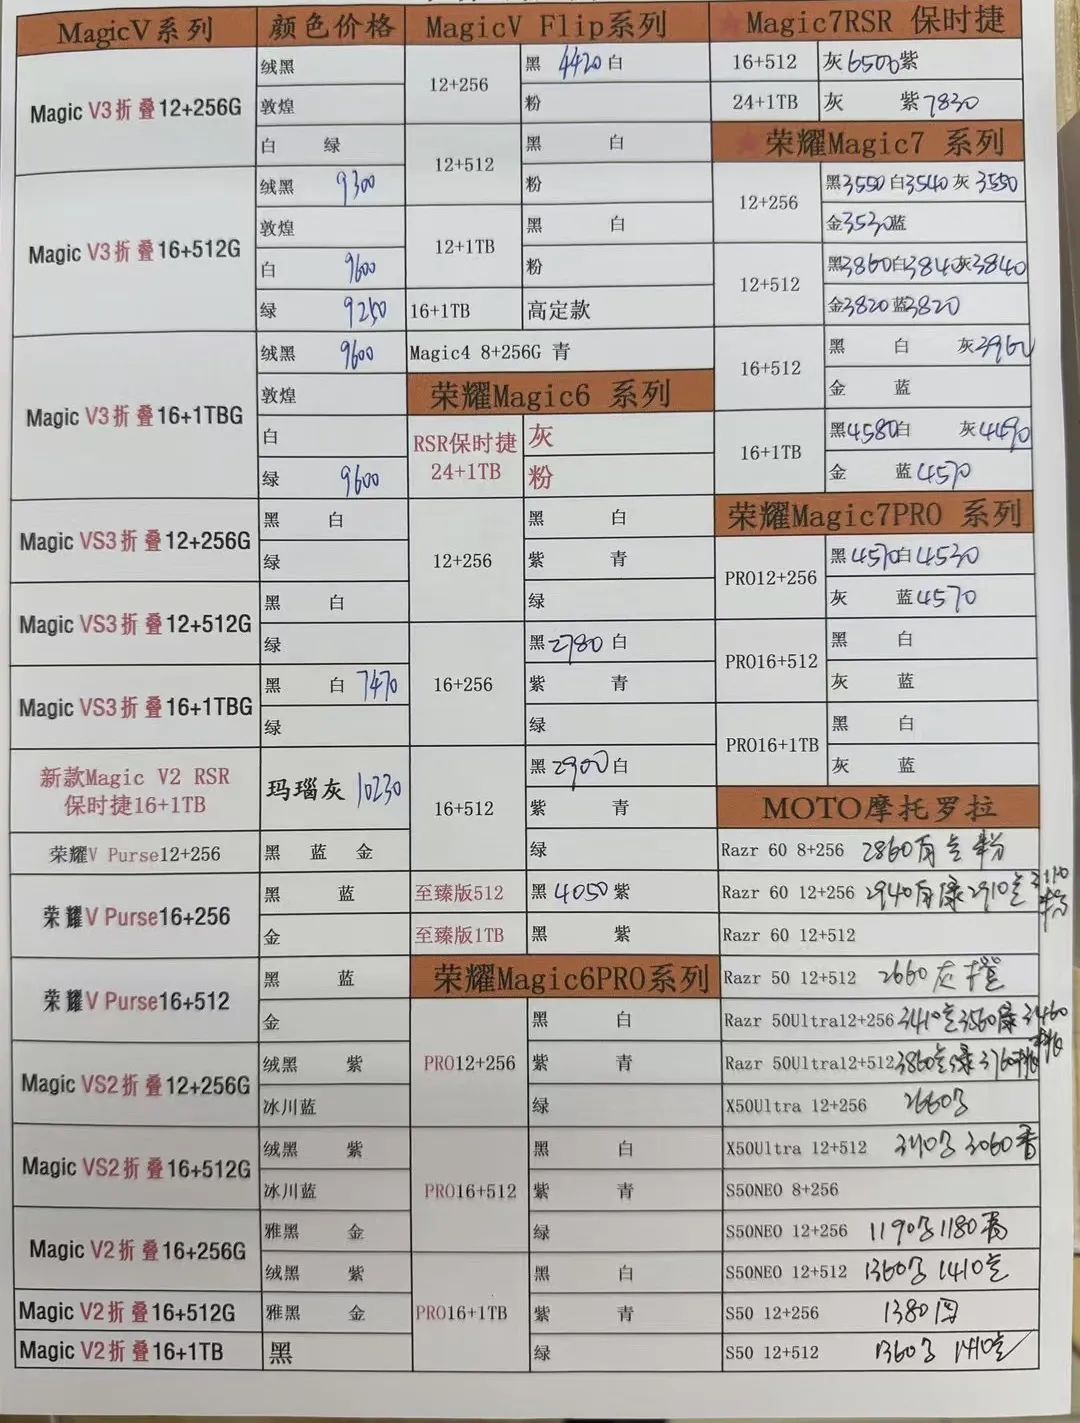 MagicV系列 颜色价格
Magic V3折叠12+256G
绒黑
敦煌
白 绿
Magic V3折叠16+512G
绒黑 9300
敦煌
白 9600
绿 9250
Magic V3折叠16+1TBG
绒黑 9600
敦煌
白
绿 9600
Magic VS3折叠12+256G
黑 白
绿
Magic VS3折叠12+512G
黑 白
绿
Magic VS3折叠16+1TBG
黑 白 7470
绿
新款Magic V2 RSR
保时捷16+1TB
玛瑙灰 10230
荣耀V Purse12+256
黑 蓝 金
荣耀V Purse16+256
黑 蓝
金
荣耀V Purse16+512
黑 蓝
金
Magic VS2折叠12+256G
绒黑 紫
冰川蓝
Magic VS2折叠16+512G
绒黑 紫
冰川蓝
Magic V2折叠16+256G
雅黑 金
绒黑 紫
Magic V2折叠16+512G
雅黑 金
Magic V2折叠16+1TB
黑
MagicV Flip系列
12+256
黑 4420 白
粉
12+512
黑 白
粉
12+1TB
黑 白
粉
16+1TB 高定款
Magic4 8+256G 青
荣耀Magic6 系列
RSR保时捷
24+1TB
灰
粉
12+256
黑 白
紫 青
绿
16+256
黑2780 白
紫 青
绿
16+512
黑2900白
紫 青
绿
至臻版512 黑 4050 紫
至臻版1TB 黑 紫
荣耀Magic6PRO系列
PRO12+256
黑 白
紫 青
绿
PRO16+512
黑 白
紫 青
绿
PRO16+1TB
黑 白
紫 青
绿
★Magic7RSR 保时捷
16+512 灰6500紫
24+1TB 灰 紫7830
★荣耀Magic7 系列
12+256
黑3550 白3540 灰 3550
金3530蓝
12+512
黑3860白3840灰3840
金3820 蓝3820
16+512
黑 白 灰3960
金 蓝
16+1TB
黑4580白 灰4490
金 蓝4570
荣耀Magic7PRO 系列
PRO12+256
黑4570白4530
灰 蓝4570
PRO16+512
黑 白
灰 蓝
PRO16+1TB
黑 白
灰 蓝
MOTO摩托罗拉
Razr 60 8+256 2860 粉
Razr 60 12+256 2940 绿 2910
Razr 60 12+512
Razr 50 12+512 2660 灰 橙
Razr 50Ultra12+256 3410 3560绿 3460
Razr 50Ultra12+512 3860 绿 3760
X50Ultra 12+256 2660
X50Ultra 12+512 3060
S50NEO 8+256
S50NEO 12+256 1190 1180
S50NEO 12+512 1360 1410
S50 12+256 1380
S50 12+512 1360 1410